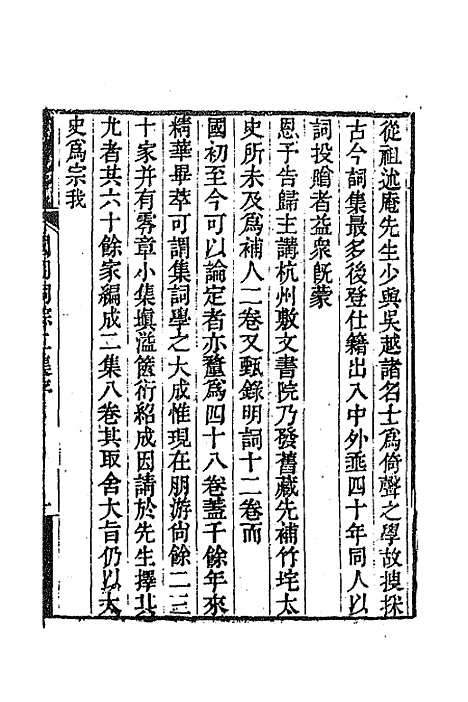 從祖述庵先生少與吳越諸名士爲倚聲之學故搜採
古今詞集最多後登仕籍出入中外垂四十年同人以
詞投贈者益衆旣蒙
恩予告歸主講杭州敷文書院乃發舊藏先補竹垞太
史所未及爲補人二卷又甄錄明詞十二卷而
國初至今可以論定者亦釐爲四十八卷蓋千餘年來
精華畢萃可謂集詞學之大成惟現在朋游尙餘二三
十家幷有零章小集塡溢篋衍紹成因請於先生擇其
尤者共六十餘家編成二集八卷其取舍大旨仍以太
史爲宗我
國朝詞綜二集序
一